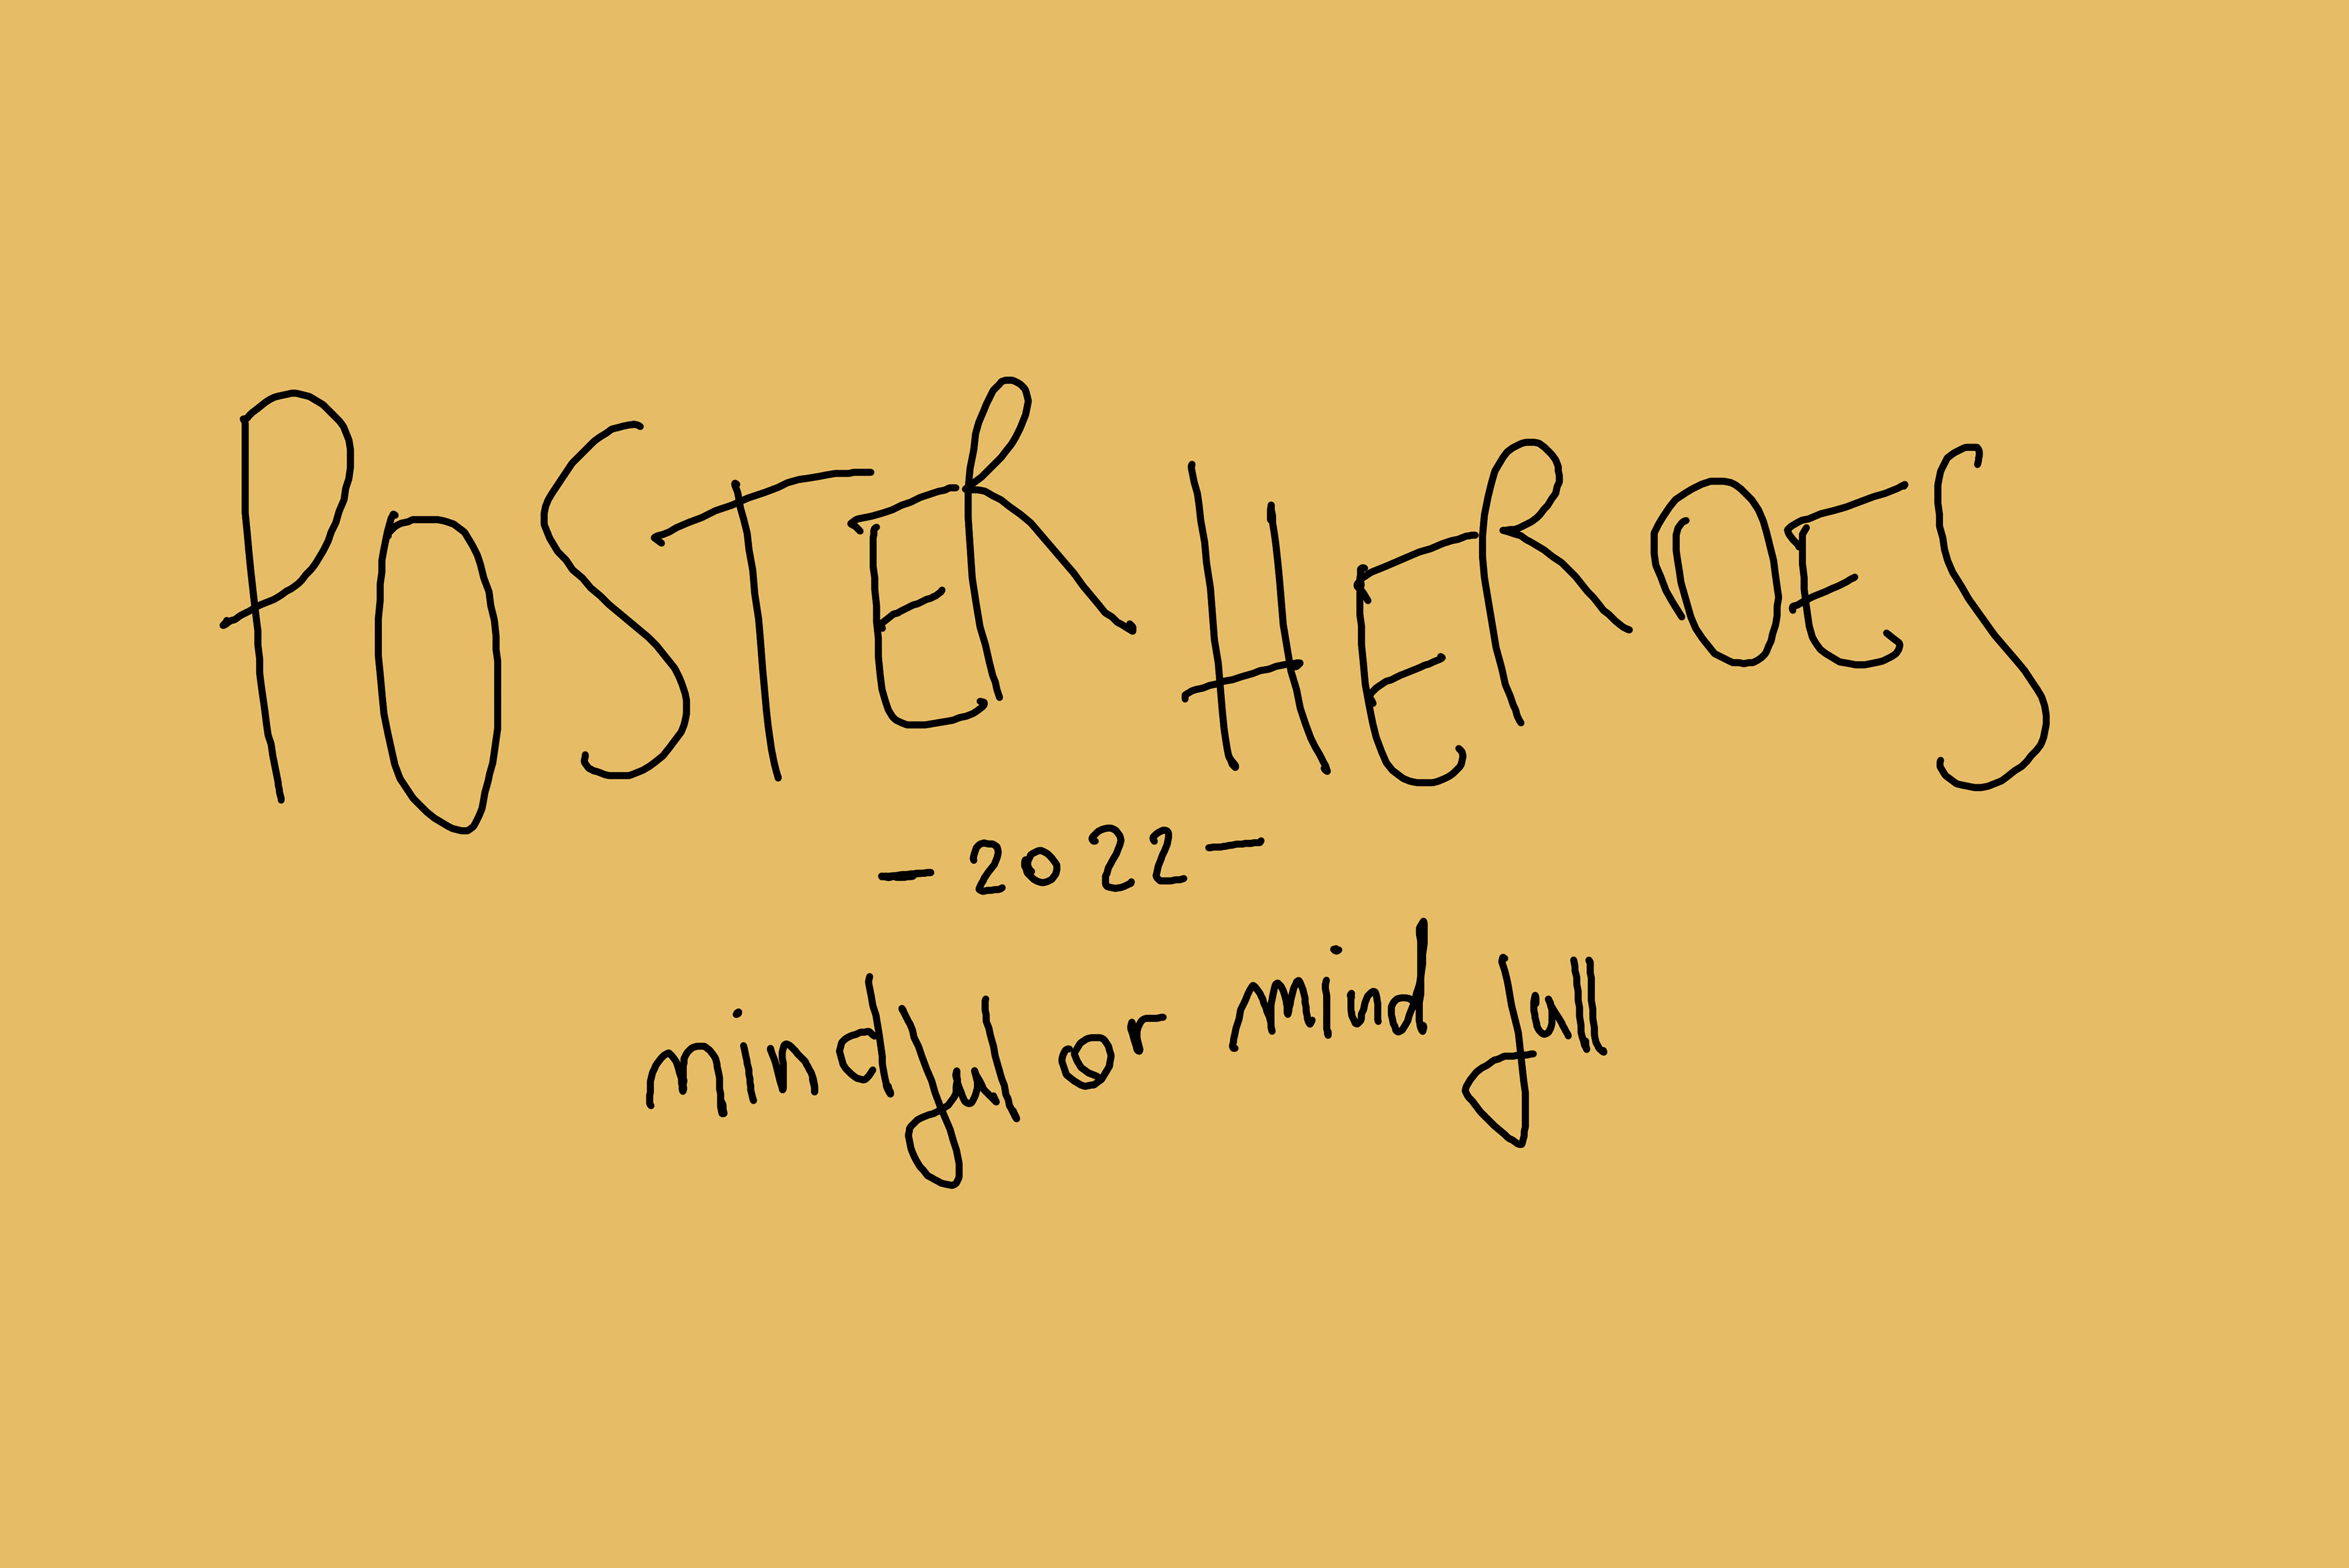 POSTER HEROES
— 2022 —
mindful or mind full